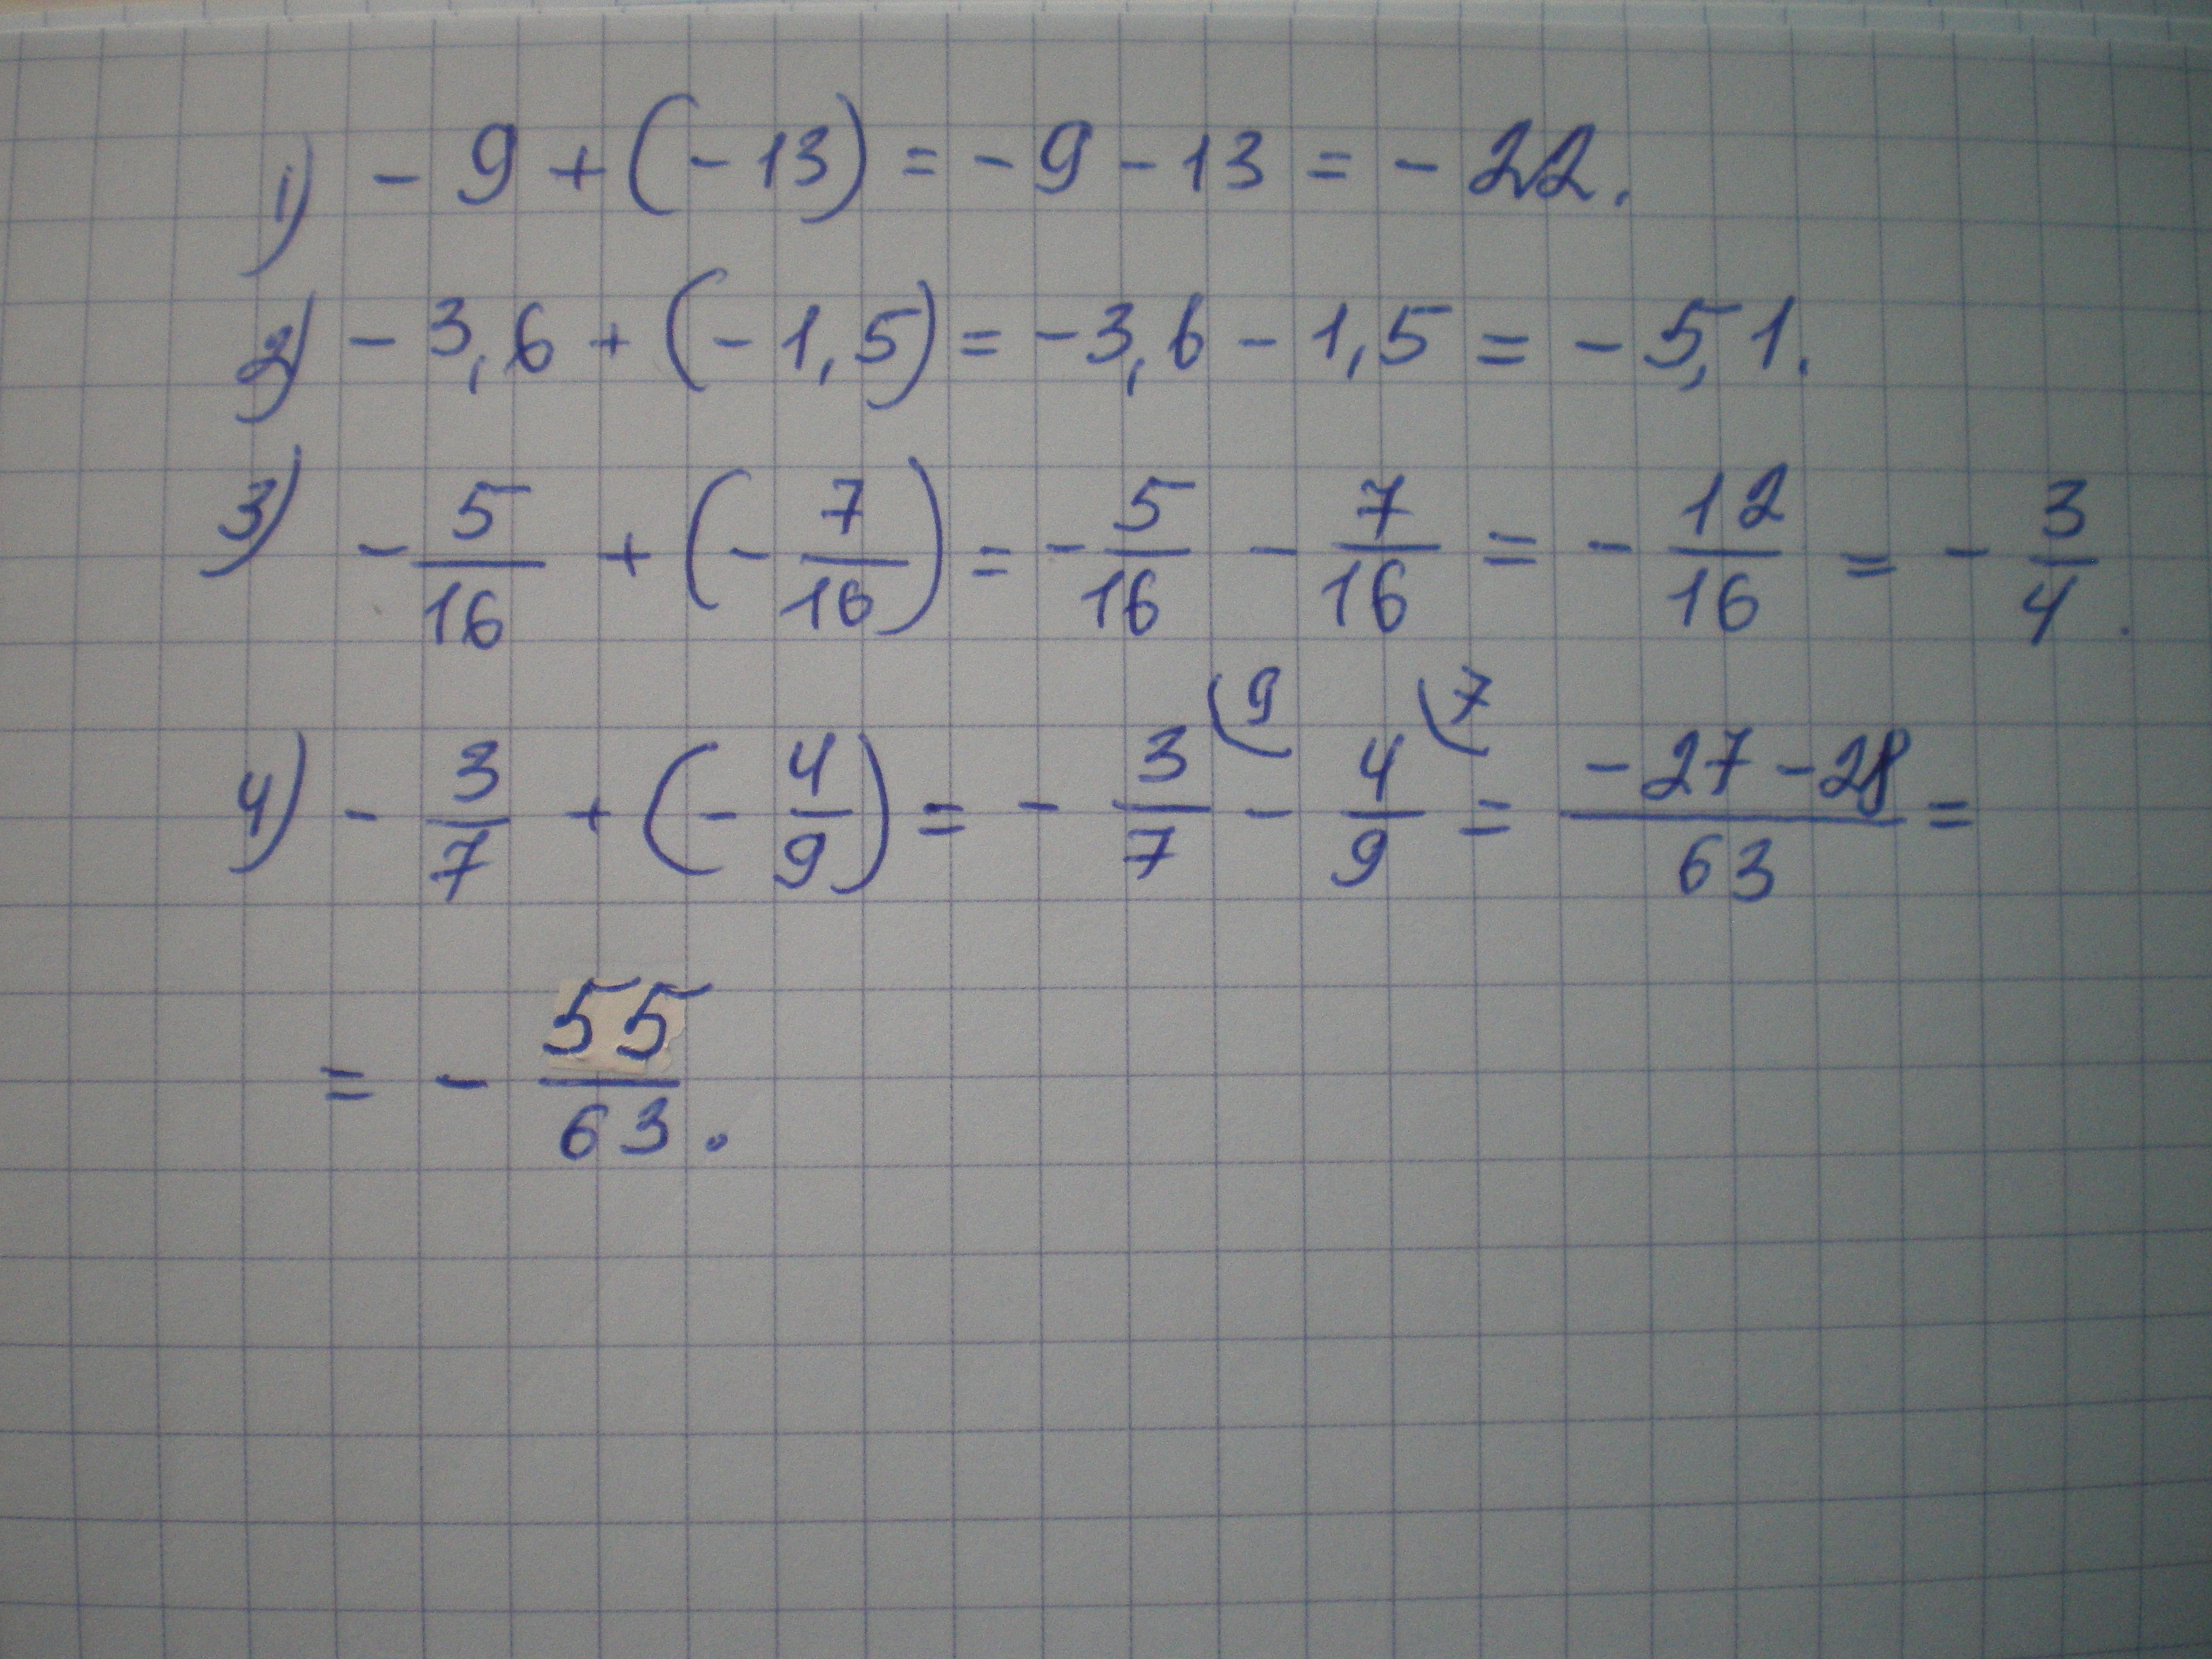 1) - 9 + (-13) = -9 - 13 = - 22.
2) - 3,6 + (- 1,5) = -3,6 - 1,5 = - 5,1.
3) - 5/16 + (- 7/16) = - 5/16 - 7/16 = - 12/16 = - 3/4.
4) - 3/7 + (- 4/9) = - 3/7 (9 - 4/9 (7 = -27 -28/63 =
= - 55/63.